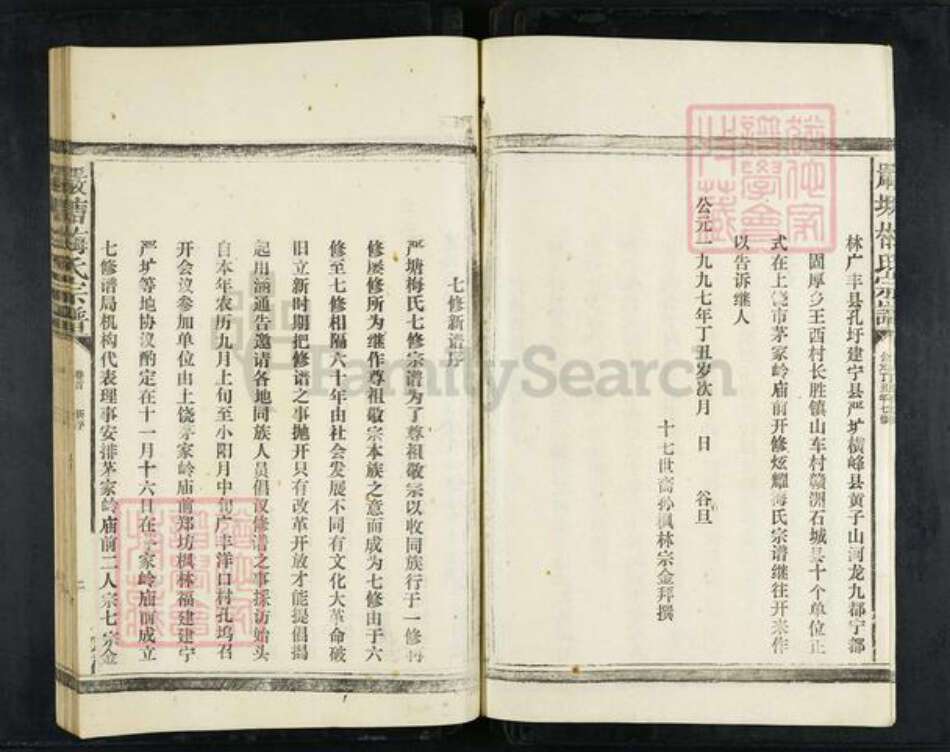 林广丰县孔圩建宁县严圹横峰县黄子山河龙九都宁都
固厚乡王西村长胜镇山车村赣洲石城县十个单位正
式在上饶市茅家岭庙前开修炫耀梅氏宗谱继往开来作
以告诉继人
公元一九九七年丁丑岁次月 日 谷旦
十七世裔孙枫林宗金拜撰
七修新谱序
严塘梅氏七修宗谱为了尊祖敬宗以收同族行于一修再
修屡修所为继作尊祖敬宗本族之意而成为七修由于六
修至七修相隔六十年由社会发展不同有文化大革命破
旧立新时期把修谱之事抛开只有改革开放才能提倡揭
起用涵通告邀请各地同族人员倡议修谱之事採访始头
自本年农历九月上旬至小阳月中旬广丰洋口村孔坞召
开会议参加单位由上饶茅家岭庙前郑坊枫林福建建宁
严圹等地协议酌定在十一月十六日在茅家岭庙前成立
七修谱局机构代表理事安排茅家岭庙前二人宗七宗金
嚴塘梅氏宗譜
卷首
新序
二
FamilySearch